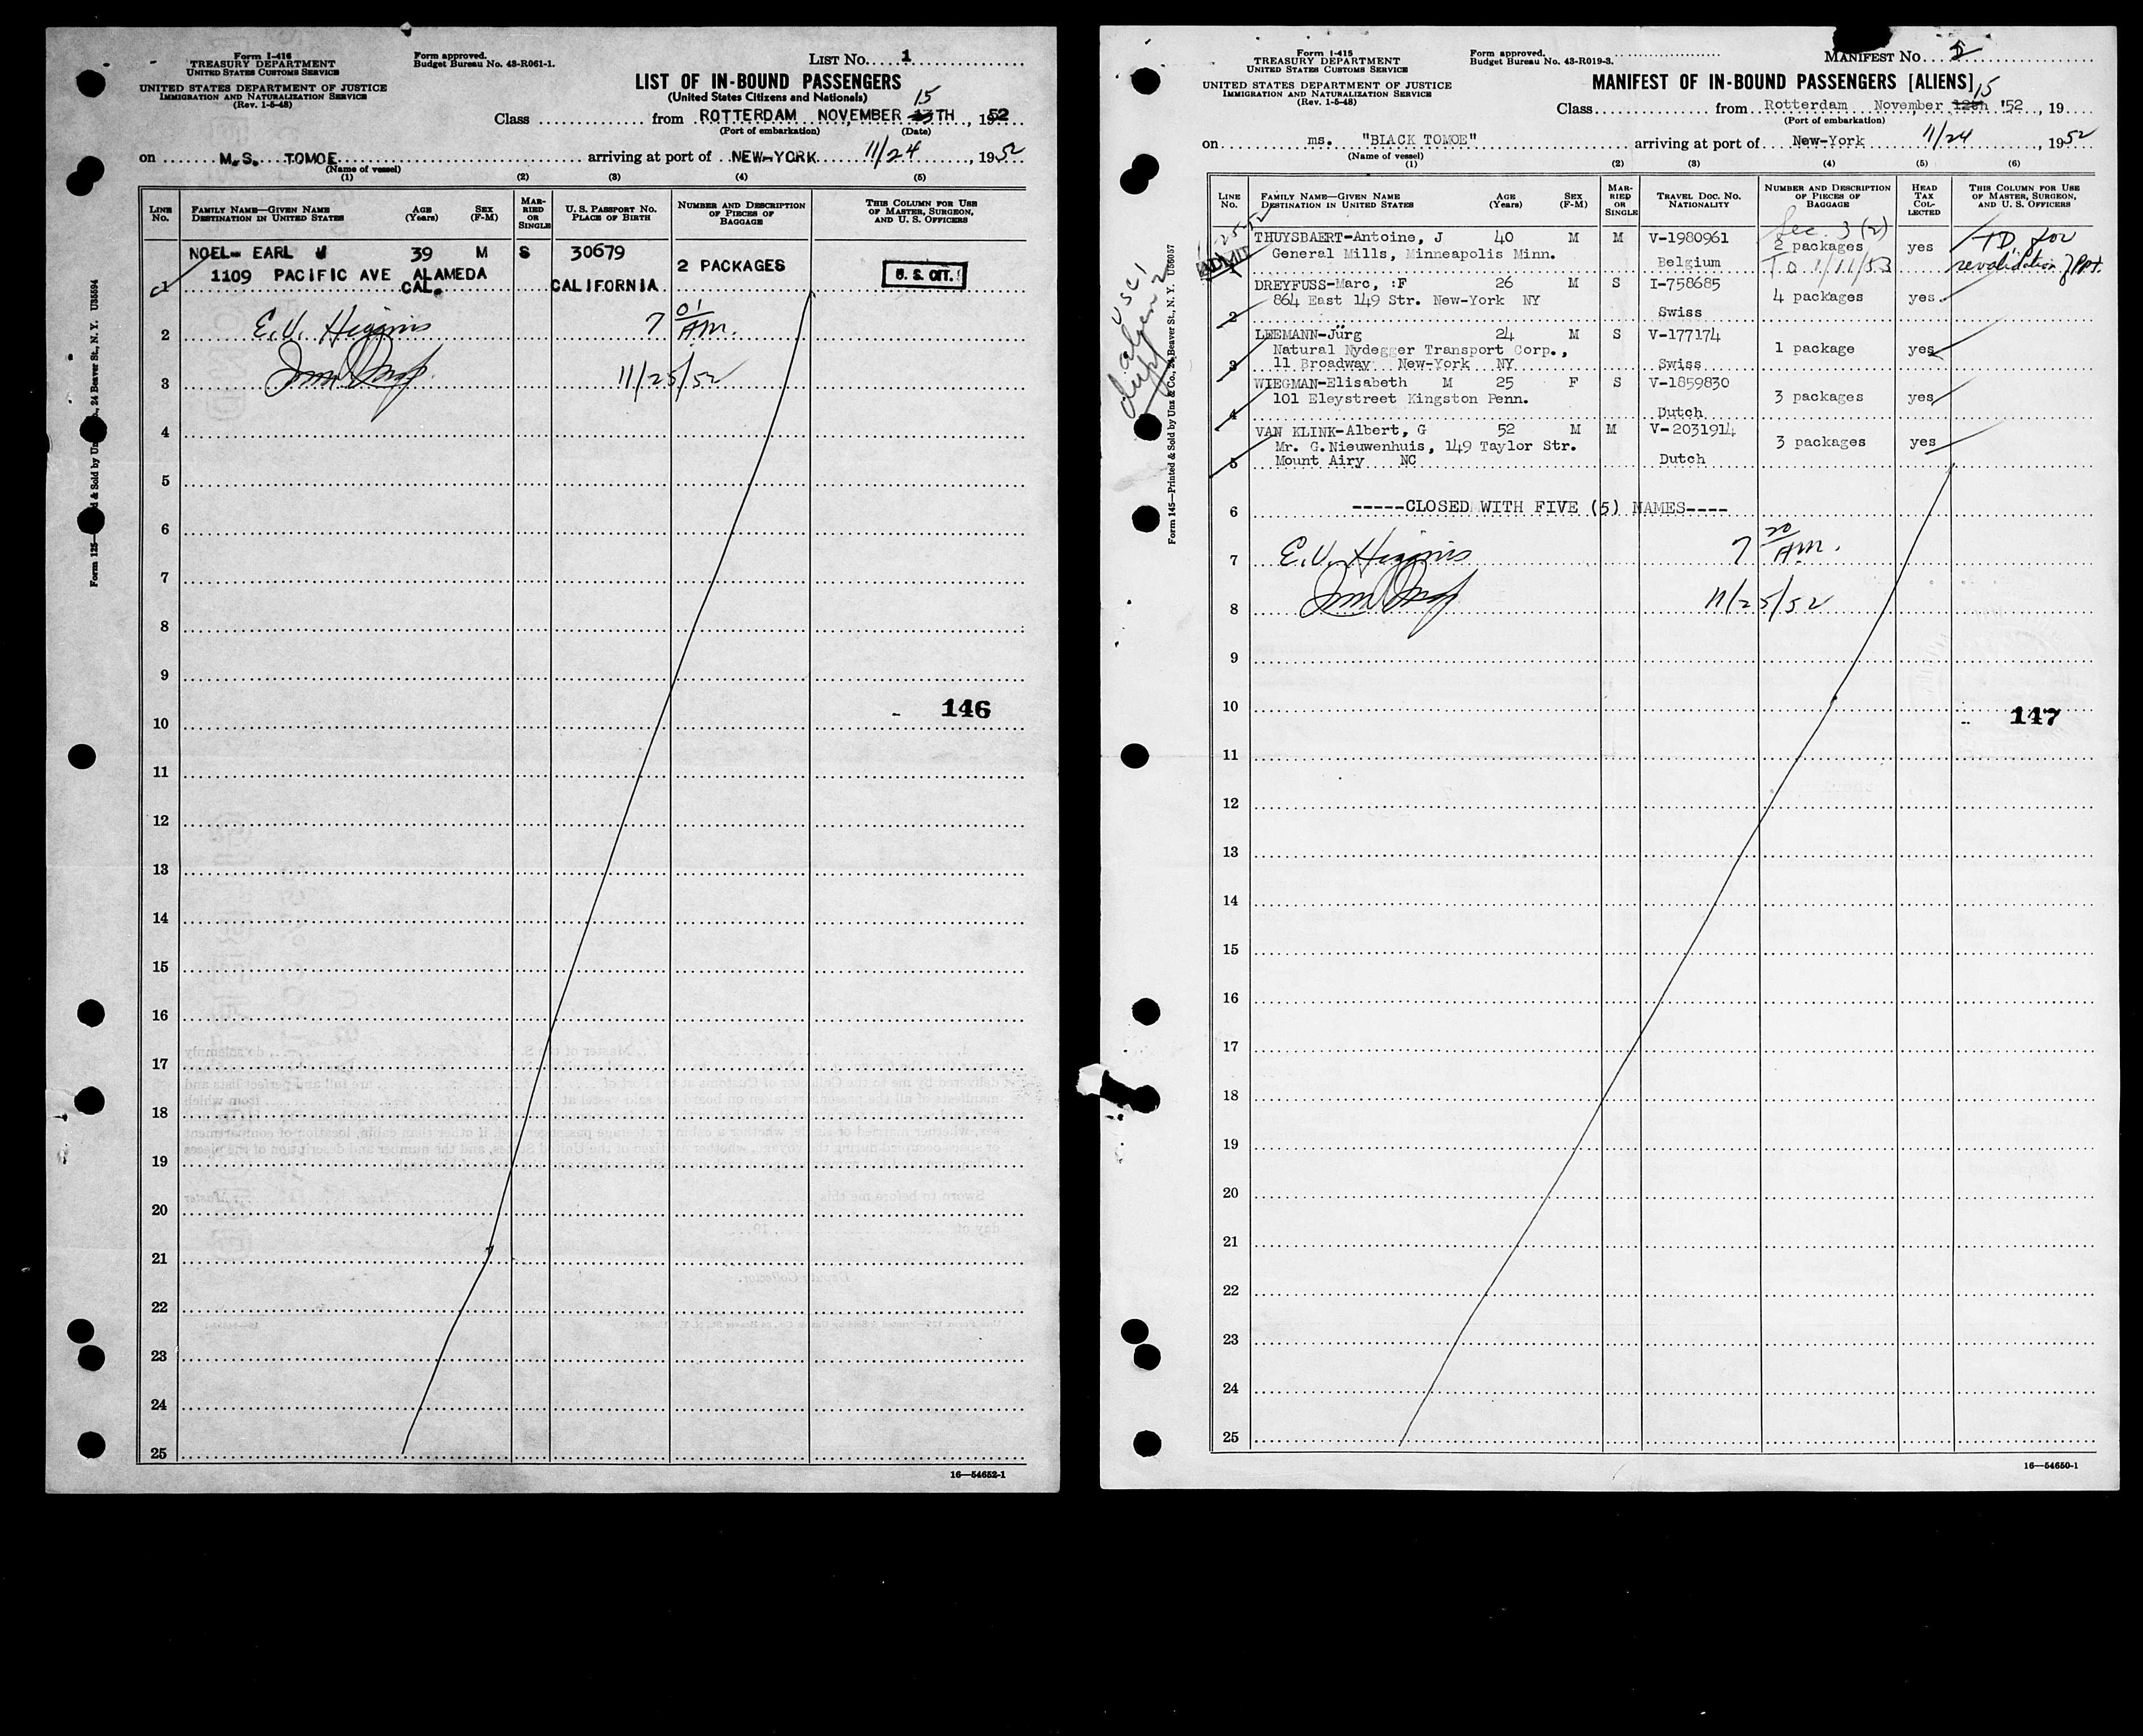 Form I-416
TREASURY DEPARTMENT
UNITED STATES CUSTOMS SERVICE
UNITED STATES DEPARTMENT OF JUSTICE
IMMIGRATION AND NATURALIZATION SERVICE
(Rev. 1-5-48)
Form approved.
Budget Bureau No. 43-R061-1.
LIST No. 1
LIST OF IN-BOUND PASSENGERS
(United States Citizens and Nationals)
15
Class from ROTTERDAM NOVEMBER TH, 1952
(Port of embarkation) (Date)
on M.S. TOMOE arriving at port of NEW-YORK 11/24, 1952
(Name of vessel)
(1) (2) (3) (4) (5)
LINE No. FAMILY NAME—GIVEN NAME DESTINATION IN UNITED STATES AGE (Years) SEX (F-M) MARRIED OR SINGLE U. S. PASSPORT No. PLACE OF BIRTH NUMBER AND DESCRIPTION OF PIECES OF BAGGAGE THIS COLUMN FOR USE OF MASTER, SURGEON, AND U. S. OFFICERS
NOEL- EARL W 39 M S 30679
1109 PACIFIC AVE ALAMEDA 2 PACKAGES U. S. CIT.
1 CAL. CALIFORNIA
2 E.V. Higgins 7 01 AM.
3 11/25/52
4
5
6
7
8
9
146
10
11
12
13
14
15
16
17
18
19
20
21
22
23
24
25
16—54652-1
Form 125— & Sold by Un , 24 Beaver St., N. Y. U35594
Form I-415
TREASURY DEPARTMENT
UNITED STATES CUSTOMS SERVICE
UNITED STATES DEPARTMENT OF JUSTICE
IMMIGRATION AND NATURALIZATION SERVICE
(Rev. 1-5-48)
Form approved.
Budget Bureau No. 43-R019-3.
MANIFEST No.
MANIFEST OF IN-BOUND PASSENGERS [ALIENS]
15
Class from Rotterdam November 12th '52, 19
(Port of embarkation)
on ms. "BLACK TOMOE" arriving at port of New-York 11/24, 1952
(Name of vessel)
(1) (2) (3) (4) (5) (6)
LINE No. FAMILY NAME—GIVEN NAME DESTINATION IN UNITED STATES AGE (Years) SEX (F-M) MARRIED OR SINGLE TRAVEL DOC. No. NATIONALITY NUMBER AND DESCRIPTION OF PIECES OF BAGGAGE HEAD TAX COLLECTED THIS COLUMN FOR USE OF MASTER, SURGEON, AND U. S. OFFICERS
Sec. 3(2)
THUYSBAERT-Antoine, J 40 M M V-1980961 2 packages yes T.D. for
General Mills, Minneapolis Minn.
1 ADMIT Belgium To 1/11/53 revalidation of Ppt.
DREYFUSS-Marc, :F 26 M S I-758685
864 East 149 Str. New-York NY 4 packages yes
2 Swiss
LEEMANN-Jürg 24 M S V-177174
Natural Nydegger Transport Corp., 1 package yes
3 11 Broadway New-York NY Swiss
WIEGMAN-Elisabeth M 25 F S V-1859830
101 Eleystreet Kingston Penn. 3 packages yes
4 Dutch
VAN KLINK-Albert, G 52 M M V-2031914
Mr. G.Nieuwenhuis, 149 Taylor Str. 3 packages yes
5 Mount Airy NC Dutch
6 -----CLOSED WITH FIVE (5) NAMES----
7 E.V. Higgins 7 20 AM.
8 11/25/52
9
10
147
11
12
13
14
15
16
17
18
19
20
21
22
23
24
25
16—54650-1
USC 1
alien 2
Form 145—Printed & Sold by Unz & Co., 24 Beaver St., N. Y. U56057